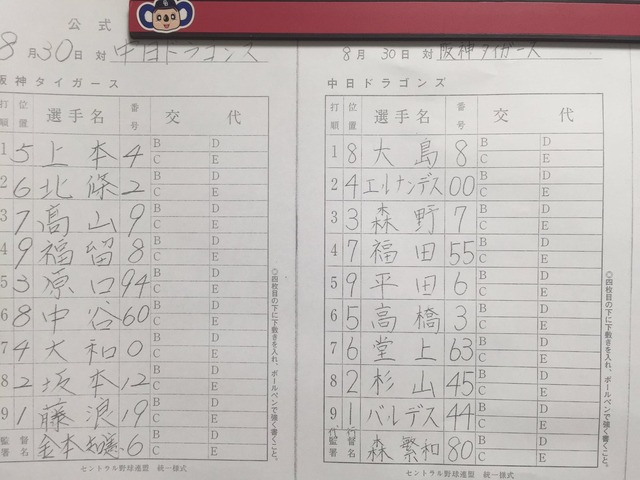 公式
8月30日 対 中日ドラゴンズ
阪神タイガース
打順 位置 選手名 番号 交代
1 5 上本 4 B D C E
2 6 北條 2 B D C E
3 7 高山 9 B D C E
4 9 福留 8 B D C E
5 3 原口 94 B D C E
6 8 中谷 60 B D C E
7 4 大和 0 B D C E
8 2 坂本 12 B D C E
9 1 藤浪 19 B D C E
監督署名 金本知憲 6 B D C E
◎四枚目の下に下敷きを入れ、ボールペンで強く書くこと。
セントラル野球連盟 統一様式
8月30日 対 阪神タイガース
中日ドラゴンズ
打順 位置 選手名 番号 交代
1 8 大島 8 B D C E
2 4 エルナンデス 00 B D C E
3 3 森野 7 B D C E
4 7 福田 55 B D C E
5 9 平田 6 B D C E
6 5 高橋 3 B D C E
7 6 堂上 63 B D C E
8 2 杉山 45 B D C E
9 1 バルデス 44 B D C E
代行 監督署名 森繁和 80 B D C E
◎四枚目の下に下敷きを入れ、ボールペンで強く書くこと。
セントラル野球連盟 統一様式